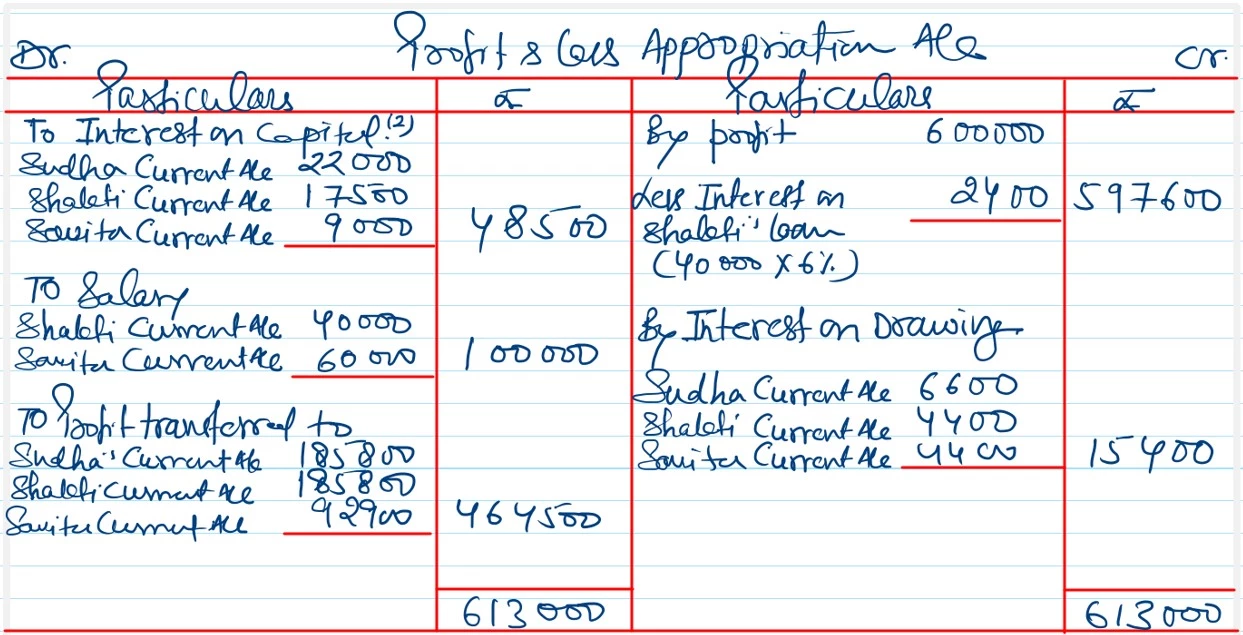 Dr.
Profit & Loss Appropriation A/c
Cr.
Particulars
₹
Particulars
₹
To Interest on Capital (2)
Sudha Current A/c 22000
Shalefi Current A/c 17500
Savita Current A/c 9000
48500
To Salary
Shalefi Current A/c 40000
Savita Current A/c 60000
100000
To Profit transferred to
Sudha's Current A/c 185800
Shalefi Current A/c 185800
Savita Current A/c 92900
464500
613000
By profit 600000
Less Interest on 2400 597600
Shalefi's loan
(40000 X 6%)
By Interest on Drawing
Sudha Current A/c 6600
Shalefi Current A/c 4400
Savita Current A/c 4400
15400
613000